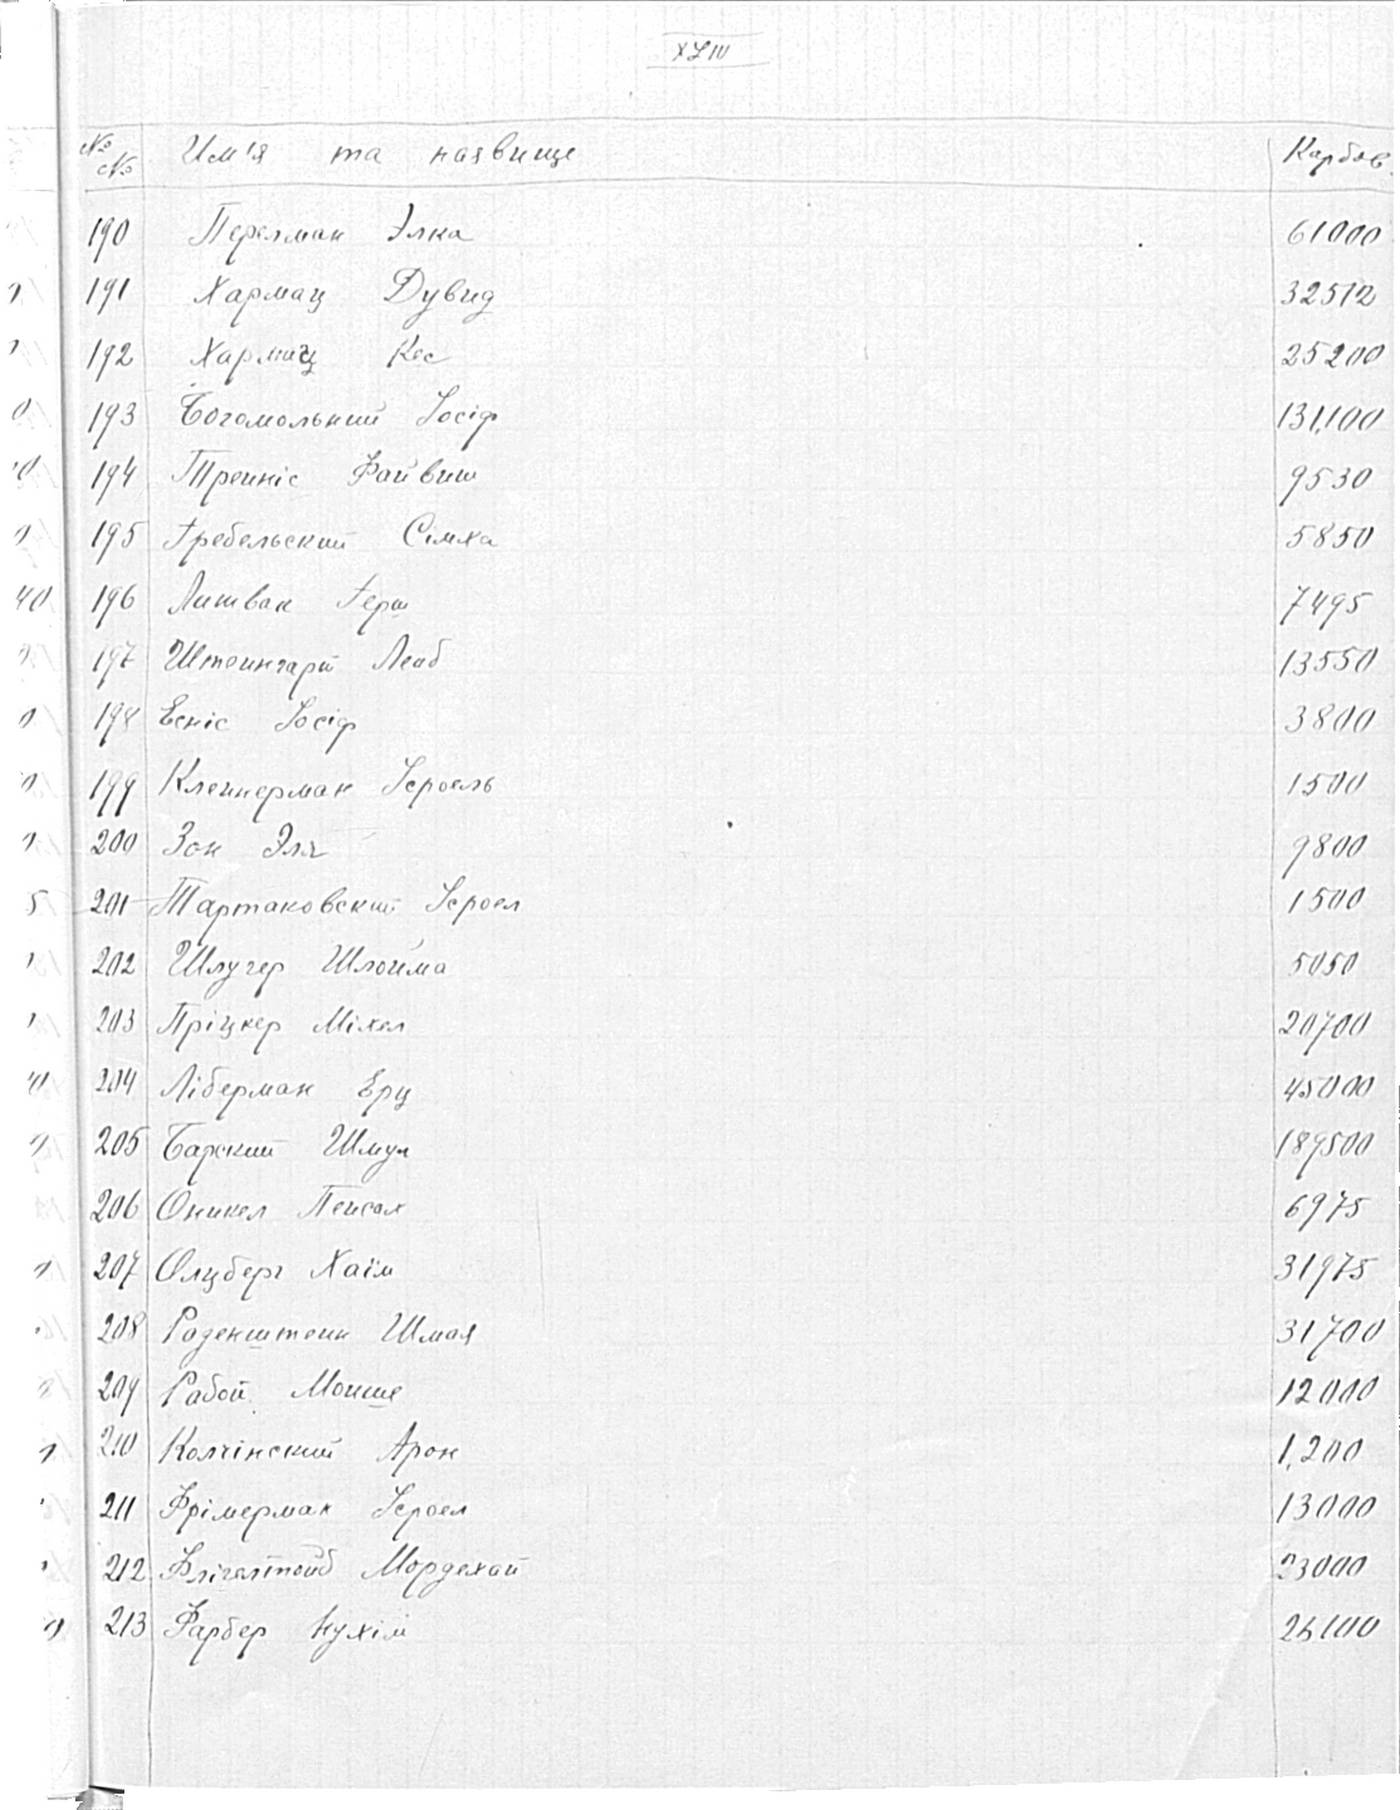 XLIV
№ № Им'я та назвище Карбов.
190 Перелман Элка 61000
191 Хармац Дувид 32512
192 Хармац Кес 25200
193 Богомольний Іосіф 131,100
194 Трейніс Файвиш 9530
195 Гребельский Сімха 5850
196 Литвак Герш 7495
197 Штеингарт Леиб 13550
198 Есніс Іосіф 3800
199 Клеинерман Ісроель 1500
200 Зон Эля 9800
201 Тартаковский Ісроел 1500
202 Шлугер Шлойма 5050
203 Пріцкер Міхел 20700
204 Ліберман Ерц 45000
205 Барский Шмул 189500
206 Оникел Пейсах 6975
207 Олцберг Хаїм 31975
208 Раденштеин Шмая 31700
209 Рабой Моише 12000
210 Колчінский Арон 1,200
211 Фрімерман Ісроел 13000
212 Мордехай 23000
213 Фарбер Нухім